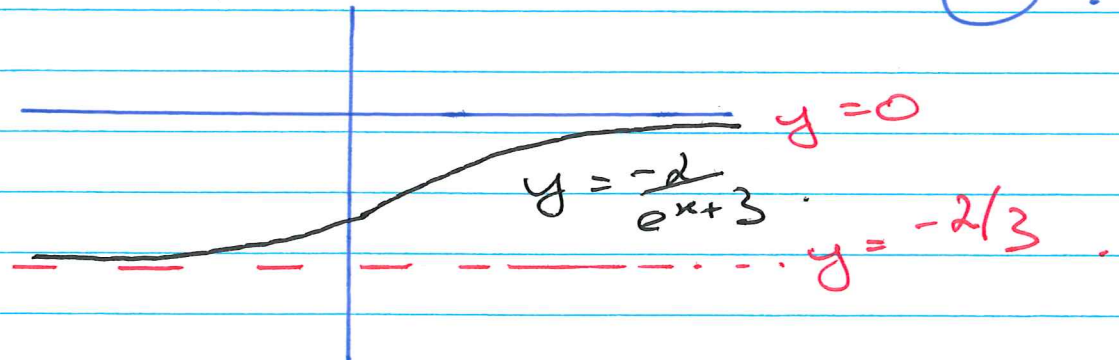 y = 0
y = -2/(e^x + 3)
y = -2/3